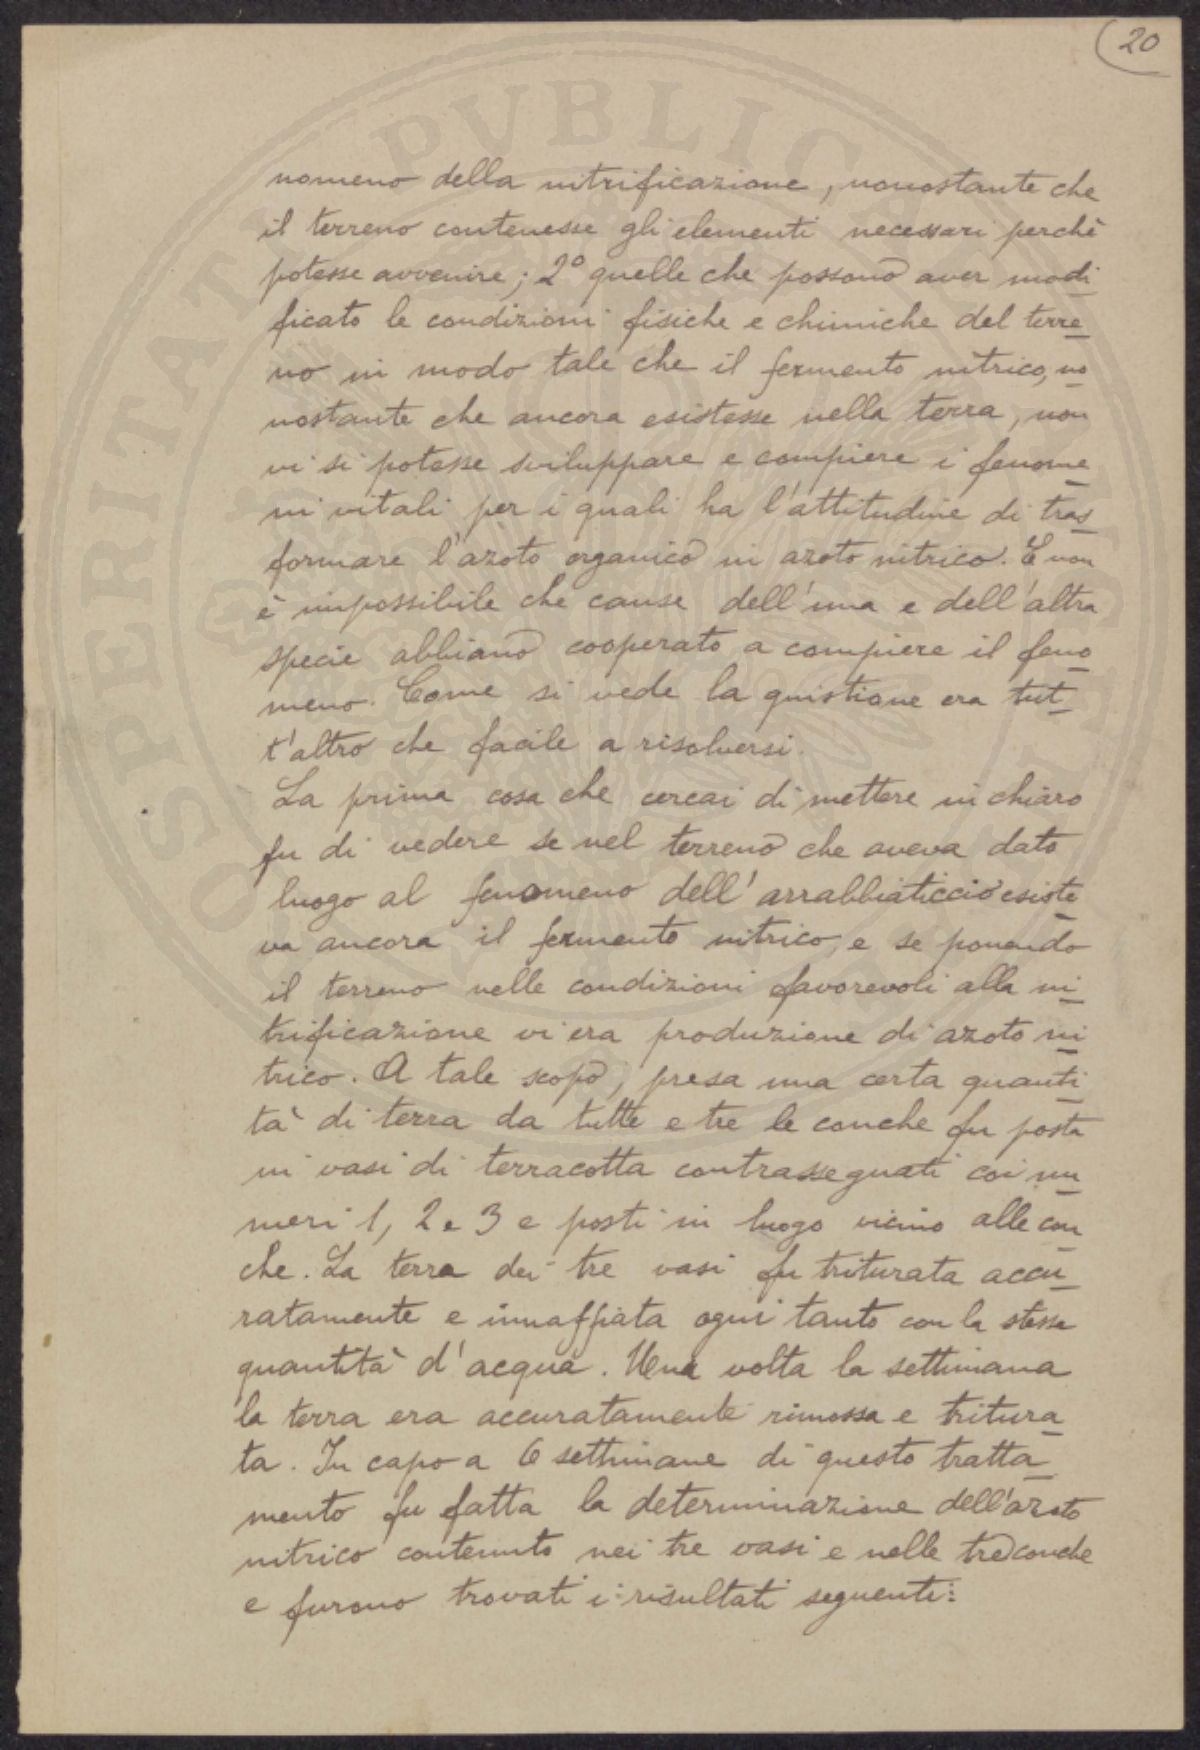 20
nomeno della nitrificazione, nonostante che
il terreno contenesse gli elementi necessari perchè
potesse avvenire; 2º quelle che possono aver modi
ficato le condizioni fisiche e chimiche del terre
no in modo tale che il fermento nitrico, no
nostante che ancora esistesse nella terra, non
vi si potesse sviluppare e compiere i fenome
ni vitali per i quali ha l'attitudine di tras
formare l'azoto organico in azoto nitrico. E non
è impossibile che cause dell'una e dell'altra
specie abbiano cooperato a compiere il feno
meno. Come si vede la quistione era tut
t'altro che facile a risolversi.
La prima cosa che cercai di mettere in chiaro
fu di vedere se nel terreno che aveva dato
luogo al fenomeno dell'arrabbiaticcio esiste
va ancora il fermento nitrico, e se ponendo
il terreno nelle condizioni favorevoli alla ni
trificazione vi era produzione di azoto ni
trico. A tale scopo, presa una certa quanti
tà di terra da tutte e tre le conche fu posta
in vasi di terracotta contrassegnati coi nu
meri 1, 2 e 3 e posti in luogo vicino alle con
che. La terra dei tre vasi fu triturata accu
ratamente e innaffiata ogni tanto con la stessa
quantità d'acqua. Una volta la settimana
la terra era accuratamente rimossa e tritura
ta. In capo a 6 settimane di questo tratta
mento fu fatta la determinazione dell'azoto
nitrico contenuto nei tre vasi e nelle tre conche
e furono trovati i risultati seguenti:
SPERITATI PVBLICAE